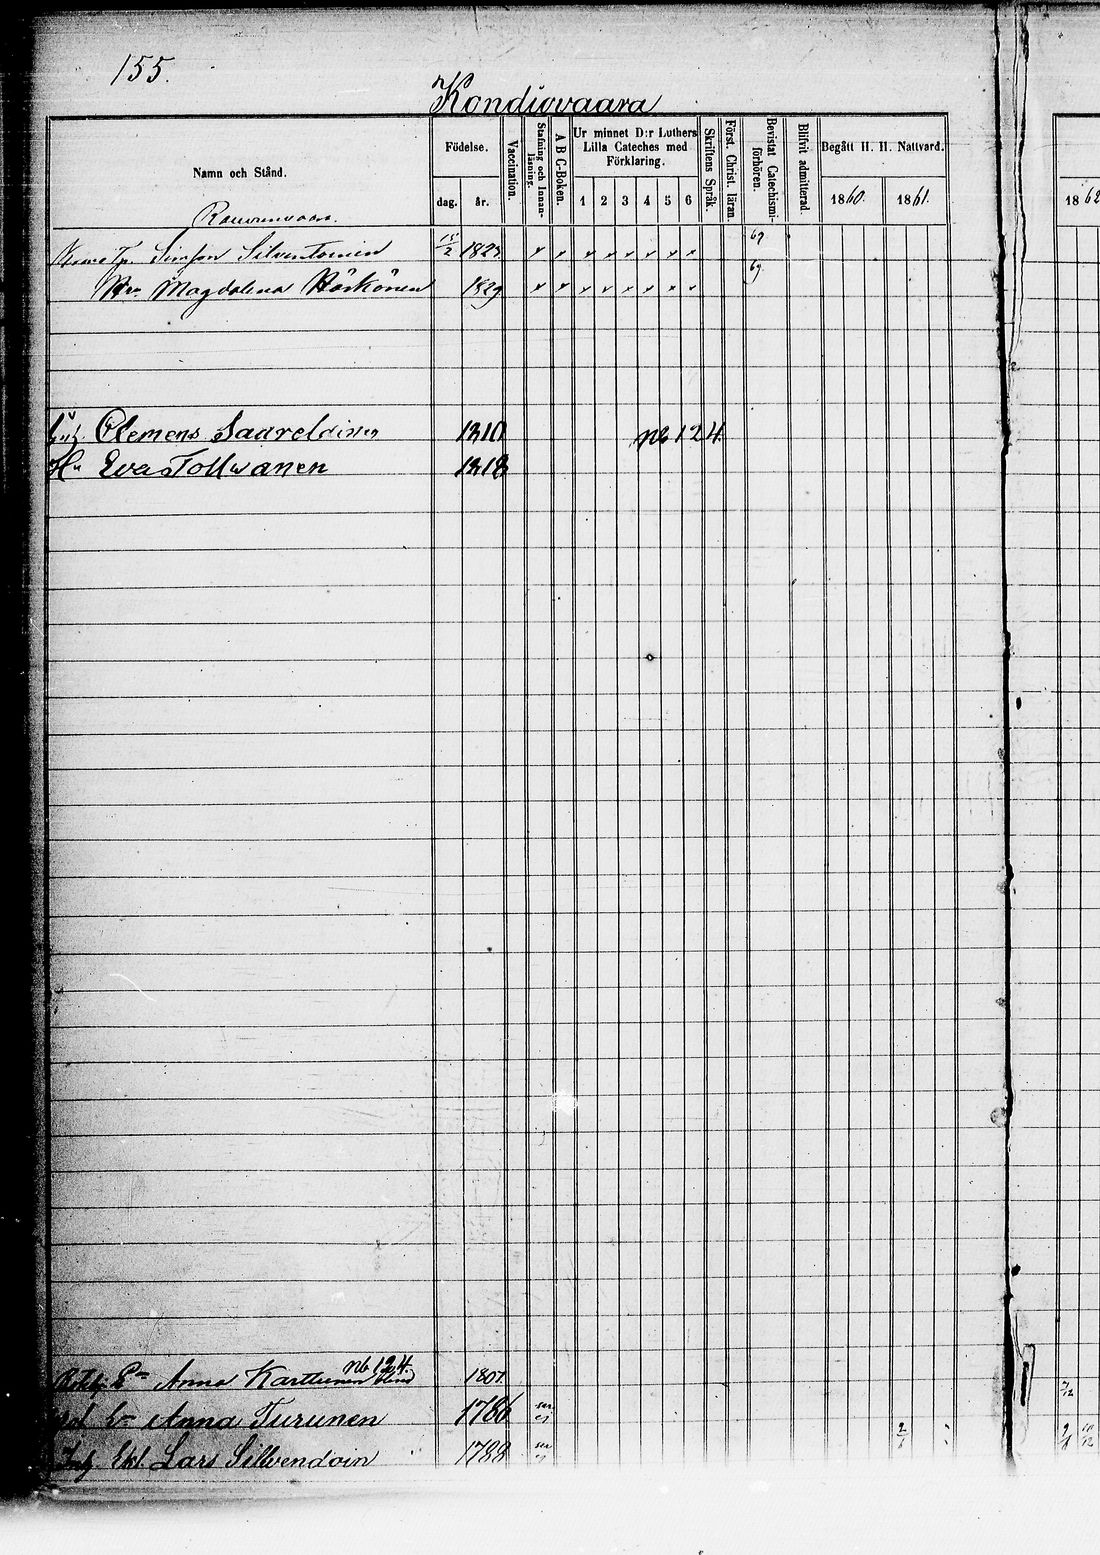 155.
Kondiovaara
Namn och Stånd.
Födelse.
dag. år.
Vaccination.
Stafning och Innan-läsning.
A B C-Boken.
Ur minnet D:r Luthers
Lilla Cateches med
Förklaring.
1 2 3 4 5 6
Skriftens Språk.
Först. Christ. läran.
Bevistat Catechismi-förhören.
Blifvit admitterad.
Begått H. H. Nattvard.
1860. 1861. 1862
Simson Silventoinen 15/2 182 x x x x x x x x 69
Magdalena Härkönen 1829 x x x x x x x x 69
Clemens 1810 nb 124
Hu Eva Tollwanen 1818
nb 124.
Anna Karttunen 1807. 7/12
Anna Turunen 1786
Lars Silvendoin 1788